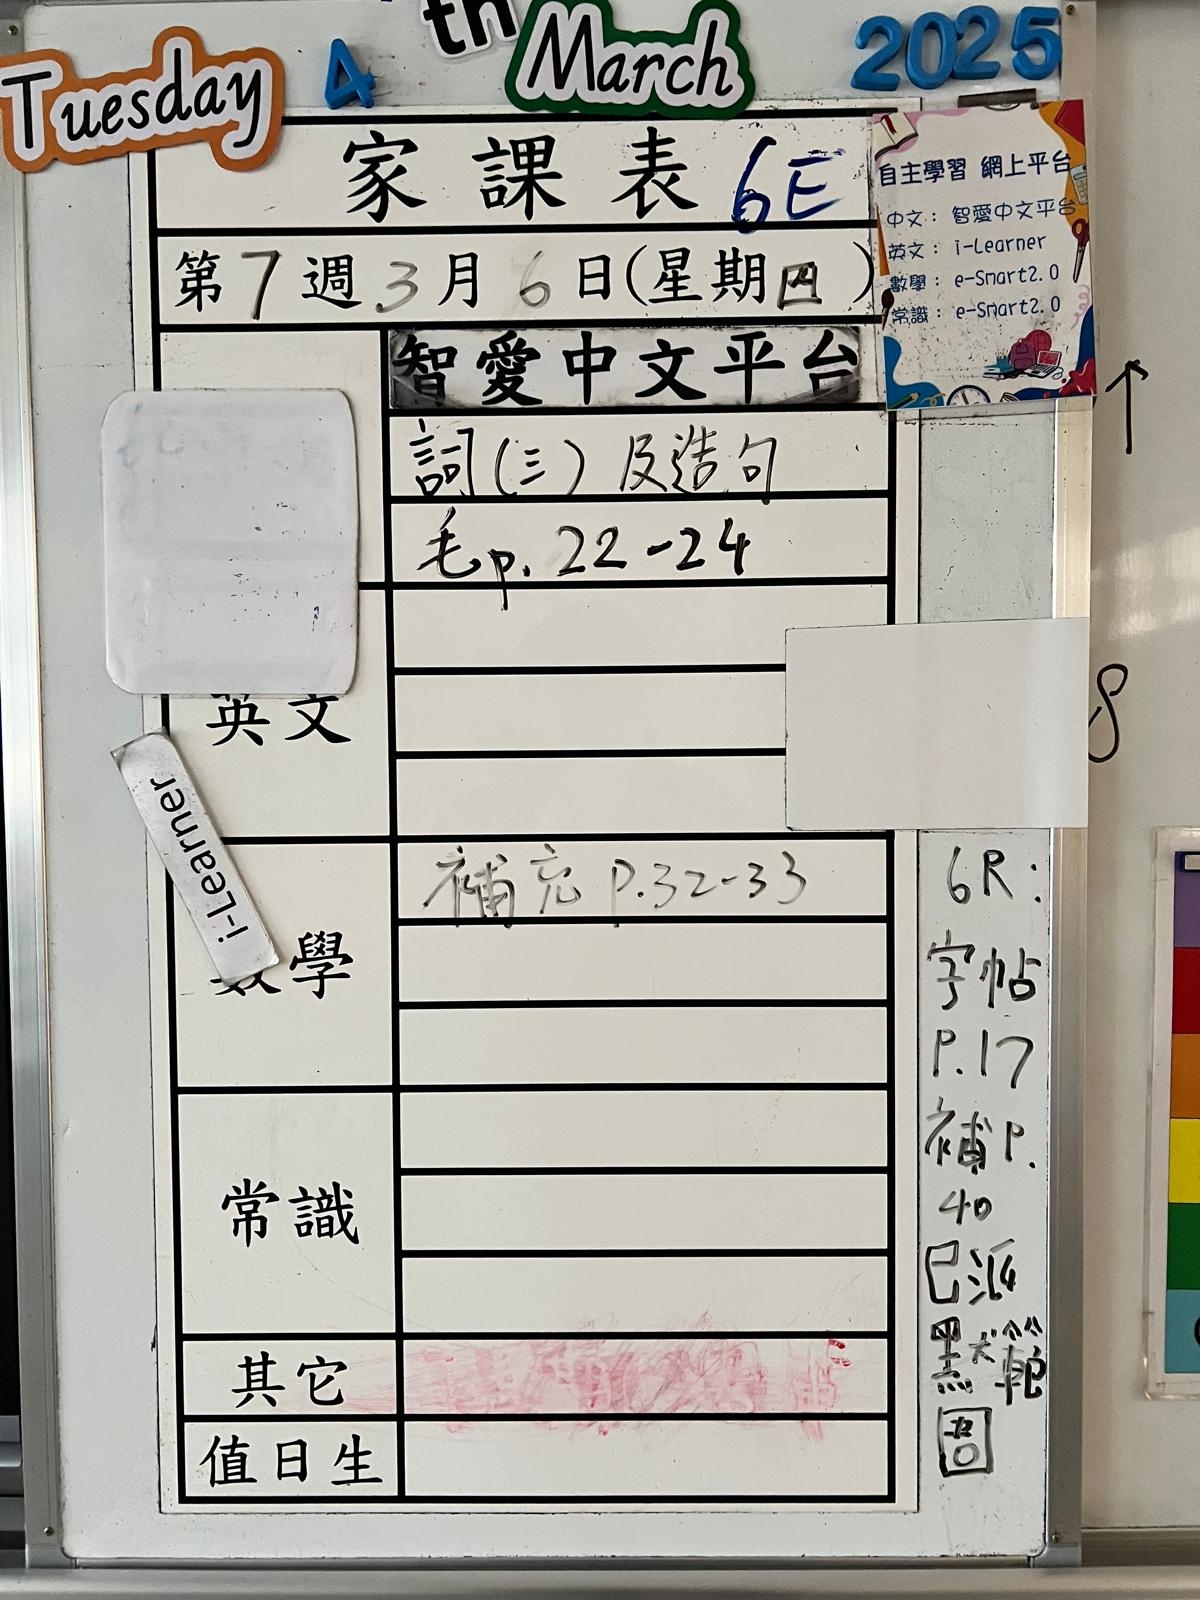 Tuesday 4th March 2025
家課表 6E
第7週3月6日(星期四)
自主學習 網上平台
中文: 智愛中文平台
英文: i-Learner
數學: e-Smart2.0
常識: e-Smart2.0
智愛中文平台
詞(三)及造句
毛p.22-24
英文
8
i-Learner
數學
補充 P.32-33
常識
其它
值日生
6R:
字帖
P.17
補P.
40
已派